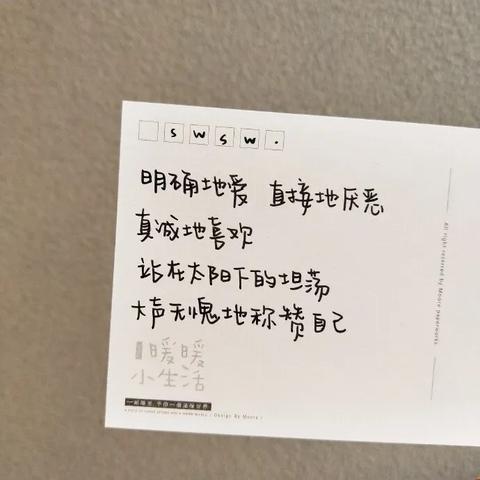 swsw.
明确地爱 直接地厌恶
真诚地喜欢
站在太阳下的坦荡
大声无愧地称赞自己
暖暖
小生活
All right reserved by Moore paperworks